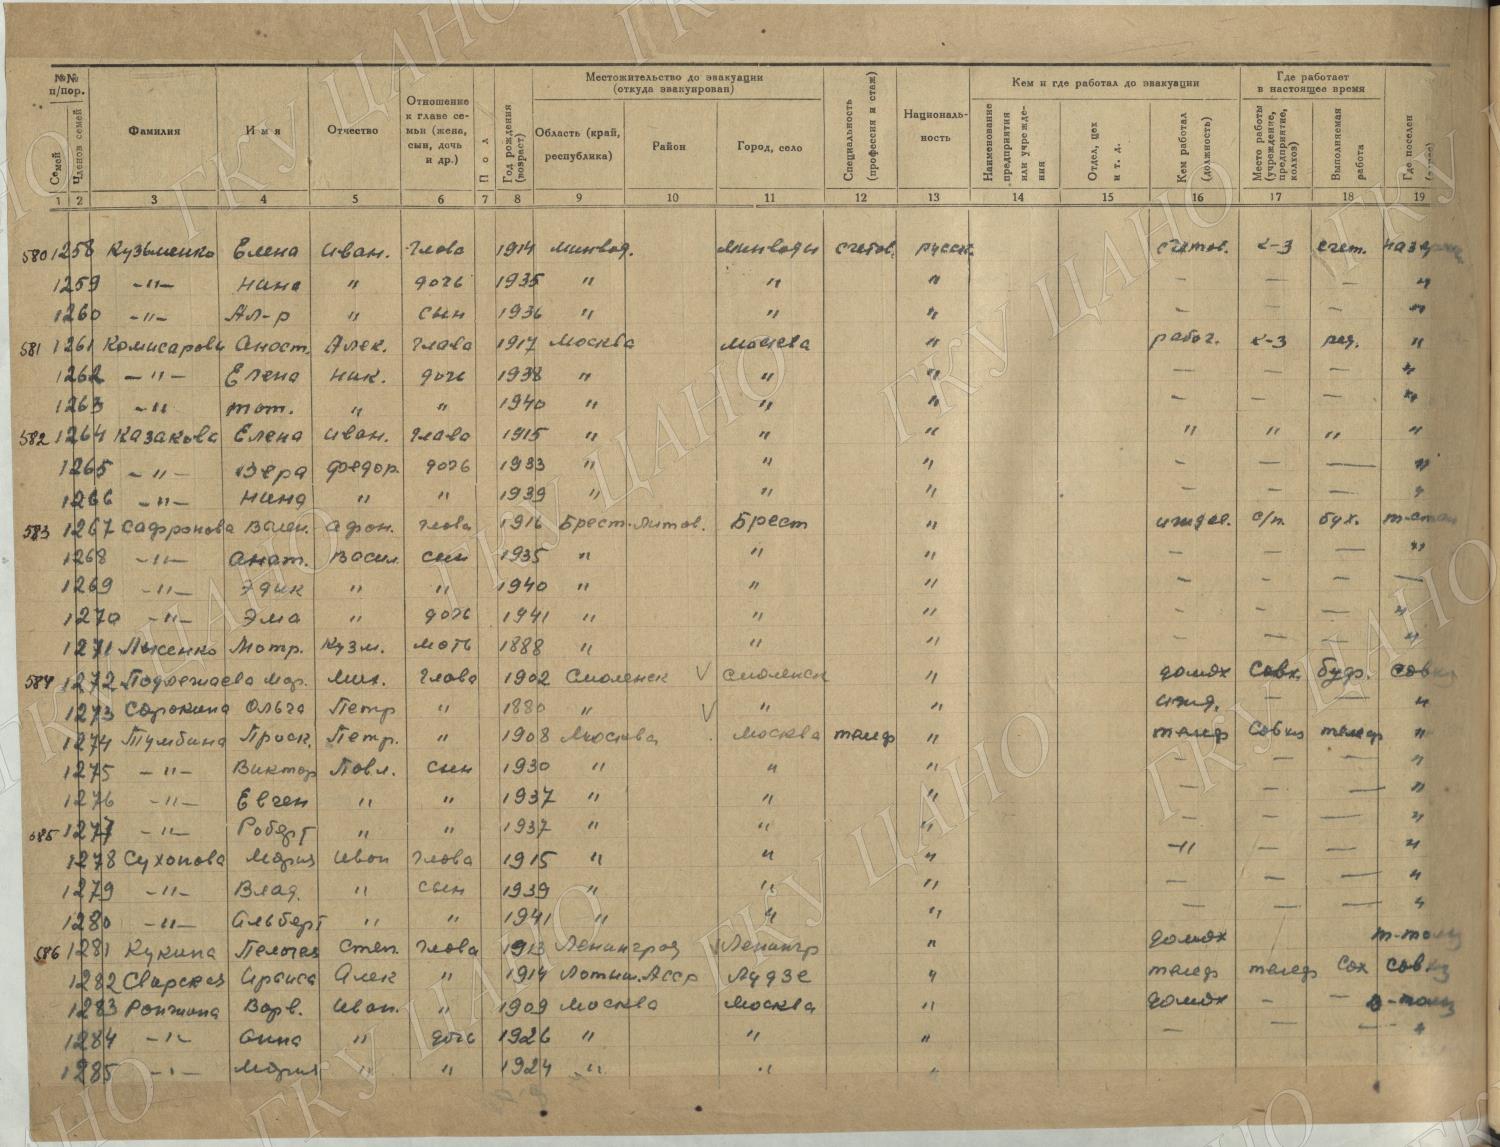 №№ п/пор.
Семей
Членов семей
Фамилия
Имя
Отчество
Отношение к главе семьи (жена, сын, дочь и др.)
Пол
Год рождения (возраст)
Местожительство до эвакуации (откуда эвакуирован)
Область (край, республика)
Район
Город, село
Специальность (профессия и стаж)
Национальность
Кем и где работал до эвакуации
Наименование предприятия или учреждения
Отдел, цех и т. д.
Кем работал (должность)
Где работает в настоящее время
Место работы (учреждение, предприятие, колхоз)
Выполняемая работа
Где поселен
1 2 3 4 5 6 7 8 9 10 11 12 13 14 15 16 17 18 19
580 1258 Кузьменко Елена Иван. Глава 1914 Минвод. Минводы счетов. русск. счетов. к-з счет.
1259 -"- Нина " дочь 1935 " " " - - - "
1260 -"- Ал-р " сын 1936 " " " - - - "
581 1261 Комисарови Анаст. Алек. Глава 1917 Москва Москва " рабоч. к-з ряд. "
1262 -"- Елена Ник. дочь 1938 " " " - - - "
1263 -"- тат. " " 1940 " " " - - - "
582 1264 Казакова Елена Иван. Глава 1915 " " " " " " "
1265 -"- Вера Федор. дочь 1933 " " " - - - "
1266 -"- Нина " " 1939 " " " - - - "
583 1267 Сафронова Вален. Афан. Глава 1916 Брест-Литов. Брест " иждев. с/п. бух.
1268 -"- Анат. Васил. сын 1935 " " " - - - "
1269 -"- Эдик " " 1940 " " " - - - -
1270 -"- Эма " дочь 1941 " " " - - - "
1271 Лысенко Мотр. Кузм. мать 1888 " " " - - - "
584 1272 Подвежаева Мар. Мих. Глава 1902 Смоленск V Смоленск " домох совх.
1273 Сорокина Ольга Петр " 1880 " V " " ижд. - - "
1274 Тумбина Праск. Петр. " 1908 Москва Москва телеф " телеф Совхз телеф "
1275 -"- Виктор Павл. сын 1930 " " " - - - "
1276 -"- Евген " " 1937 " " " - - - "
585 1277 -"- Роберт " " 1937 " " " - - - "
1278 Сухопова Мария Иван Глава 1915 " " " -"- - - "
1279 -"- Влад. " сын 1939 " " " - - - "
1280 -"- Альберт " " 1941 " " " - - - "
586 1281 Кукина Пелагея Степ. Глава 1913 Ленинград Ленингр " домох
1282 Свирская Ираида Алек " 1914 Латви. Асср Лудзе " телеф телеф Сох
1283 Ронжина Варв. Иван. " 1909 Москва Москва " домох - -
1284 -"- Анна " дочь 1926 " " " - - - "
1285 -"- Мария " " 1924 " " "
ГКУ ЦАНО